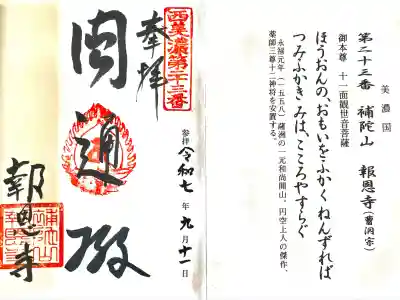 美濃国
第二十三番 補陀山 報恩寺(曹洞宗)
御本尊 十一面観世音菩薩
ほうおんの、おもいをふかくねんずれば
つみふかきみは、こころやすらぐ
永禄元年(一五五八)薩洲の一元和尚開山。円空上人の傑作、
薬師三尊十二神将を安置する。
西美濃第二十三番
奉拝
参拝 令和七年九月十一日
圓通殿
報恩寺